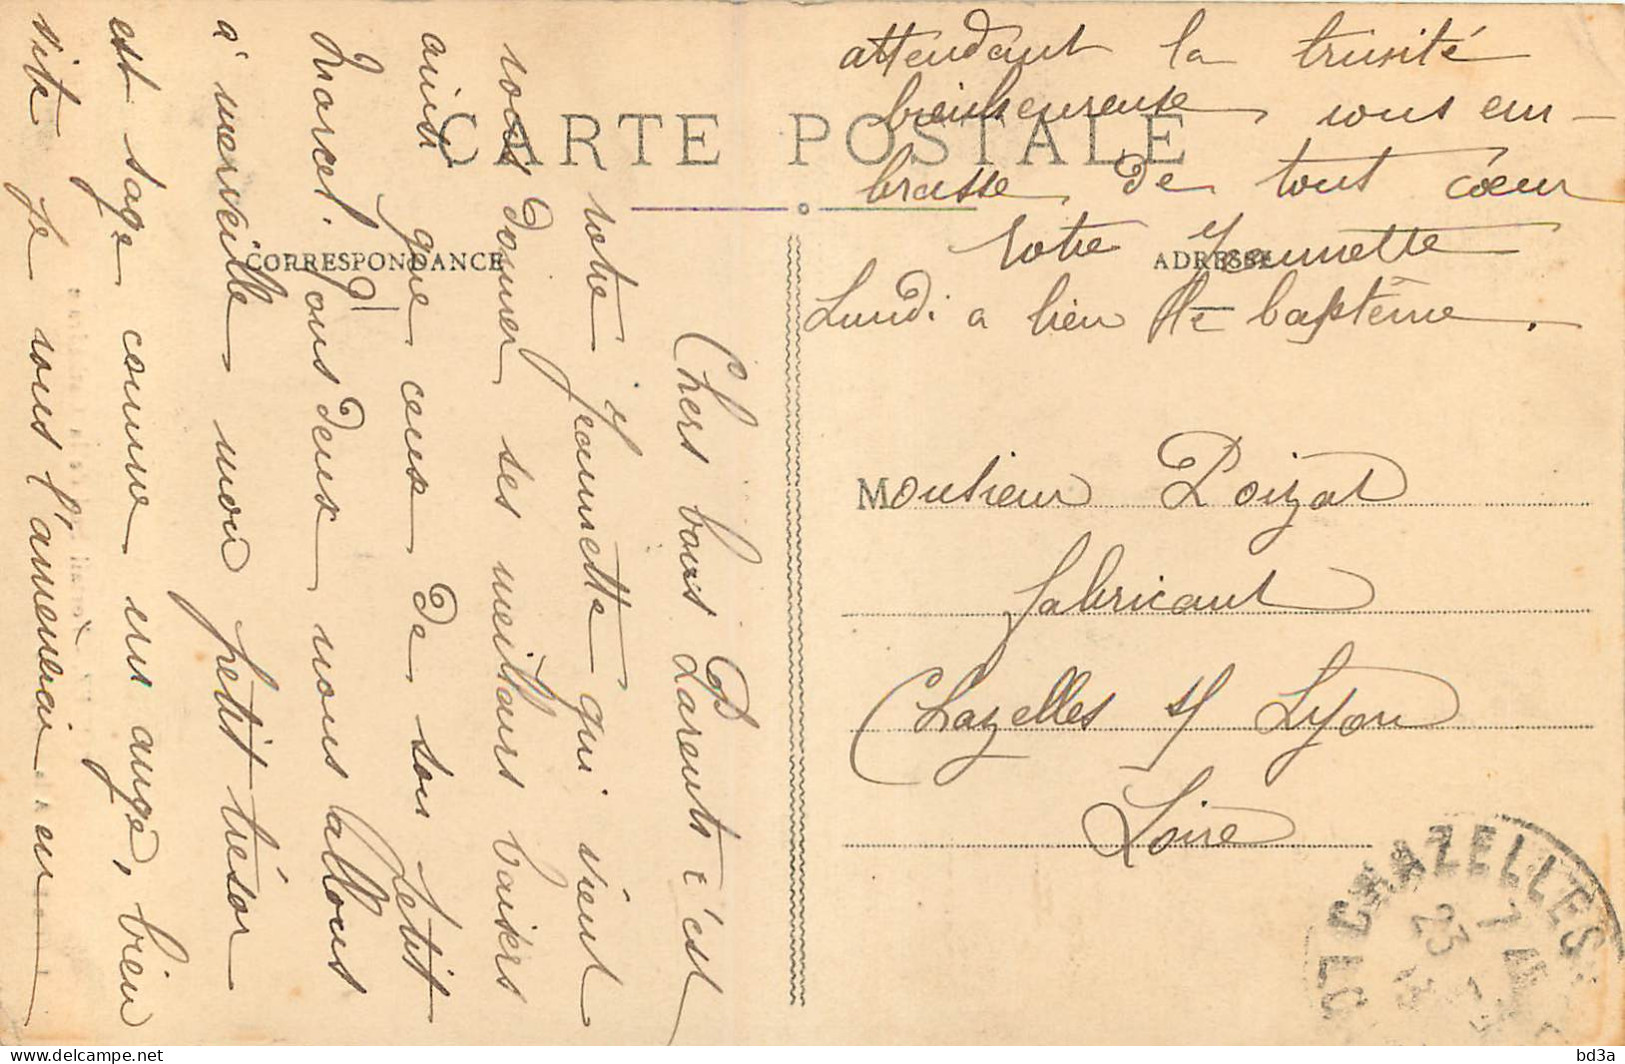 CARTE POSTALE
CORRESPONDANCE
ADRESSE
Chers bons Parents c'est
votre Jeannette qui vient
vous donner ses meilleurs baisers
ainsi que ceux de son petit
Marcel. Tous deux nous allons
à merveille mon petit trésor
est sage comme un ange, bien
vite je vous l'amènerai en
attendant la trinité
bienheureuse vous em-
brasse de tout cœur
Votre Jeannette
Lundi a lieu le baptême.
Monsieur Poizat
fabricant
Chazelles s/ Lyon
Loire
CHAZELLES
7 45
23
bd3a